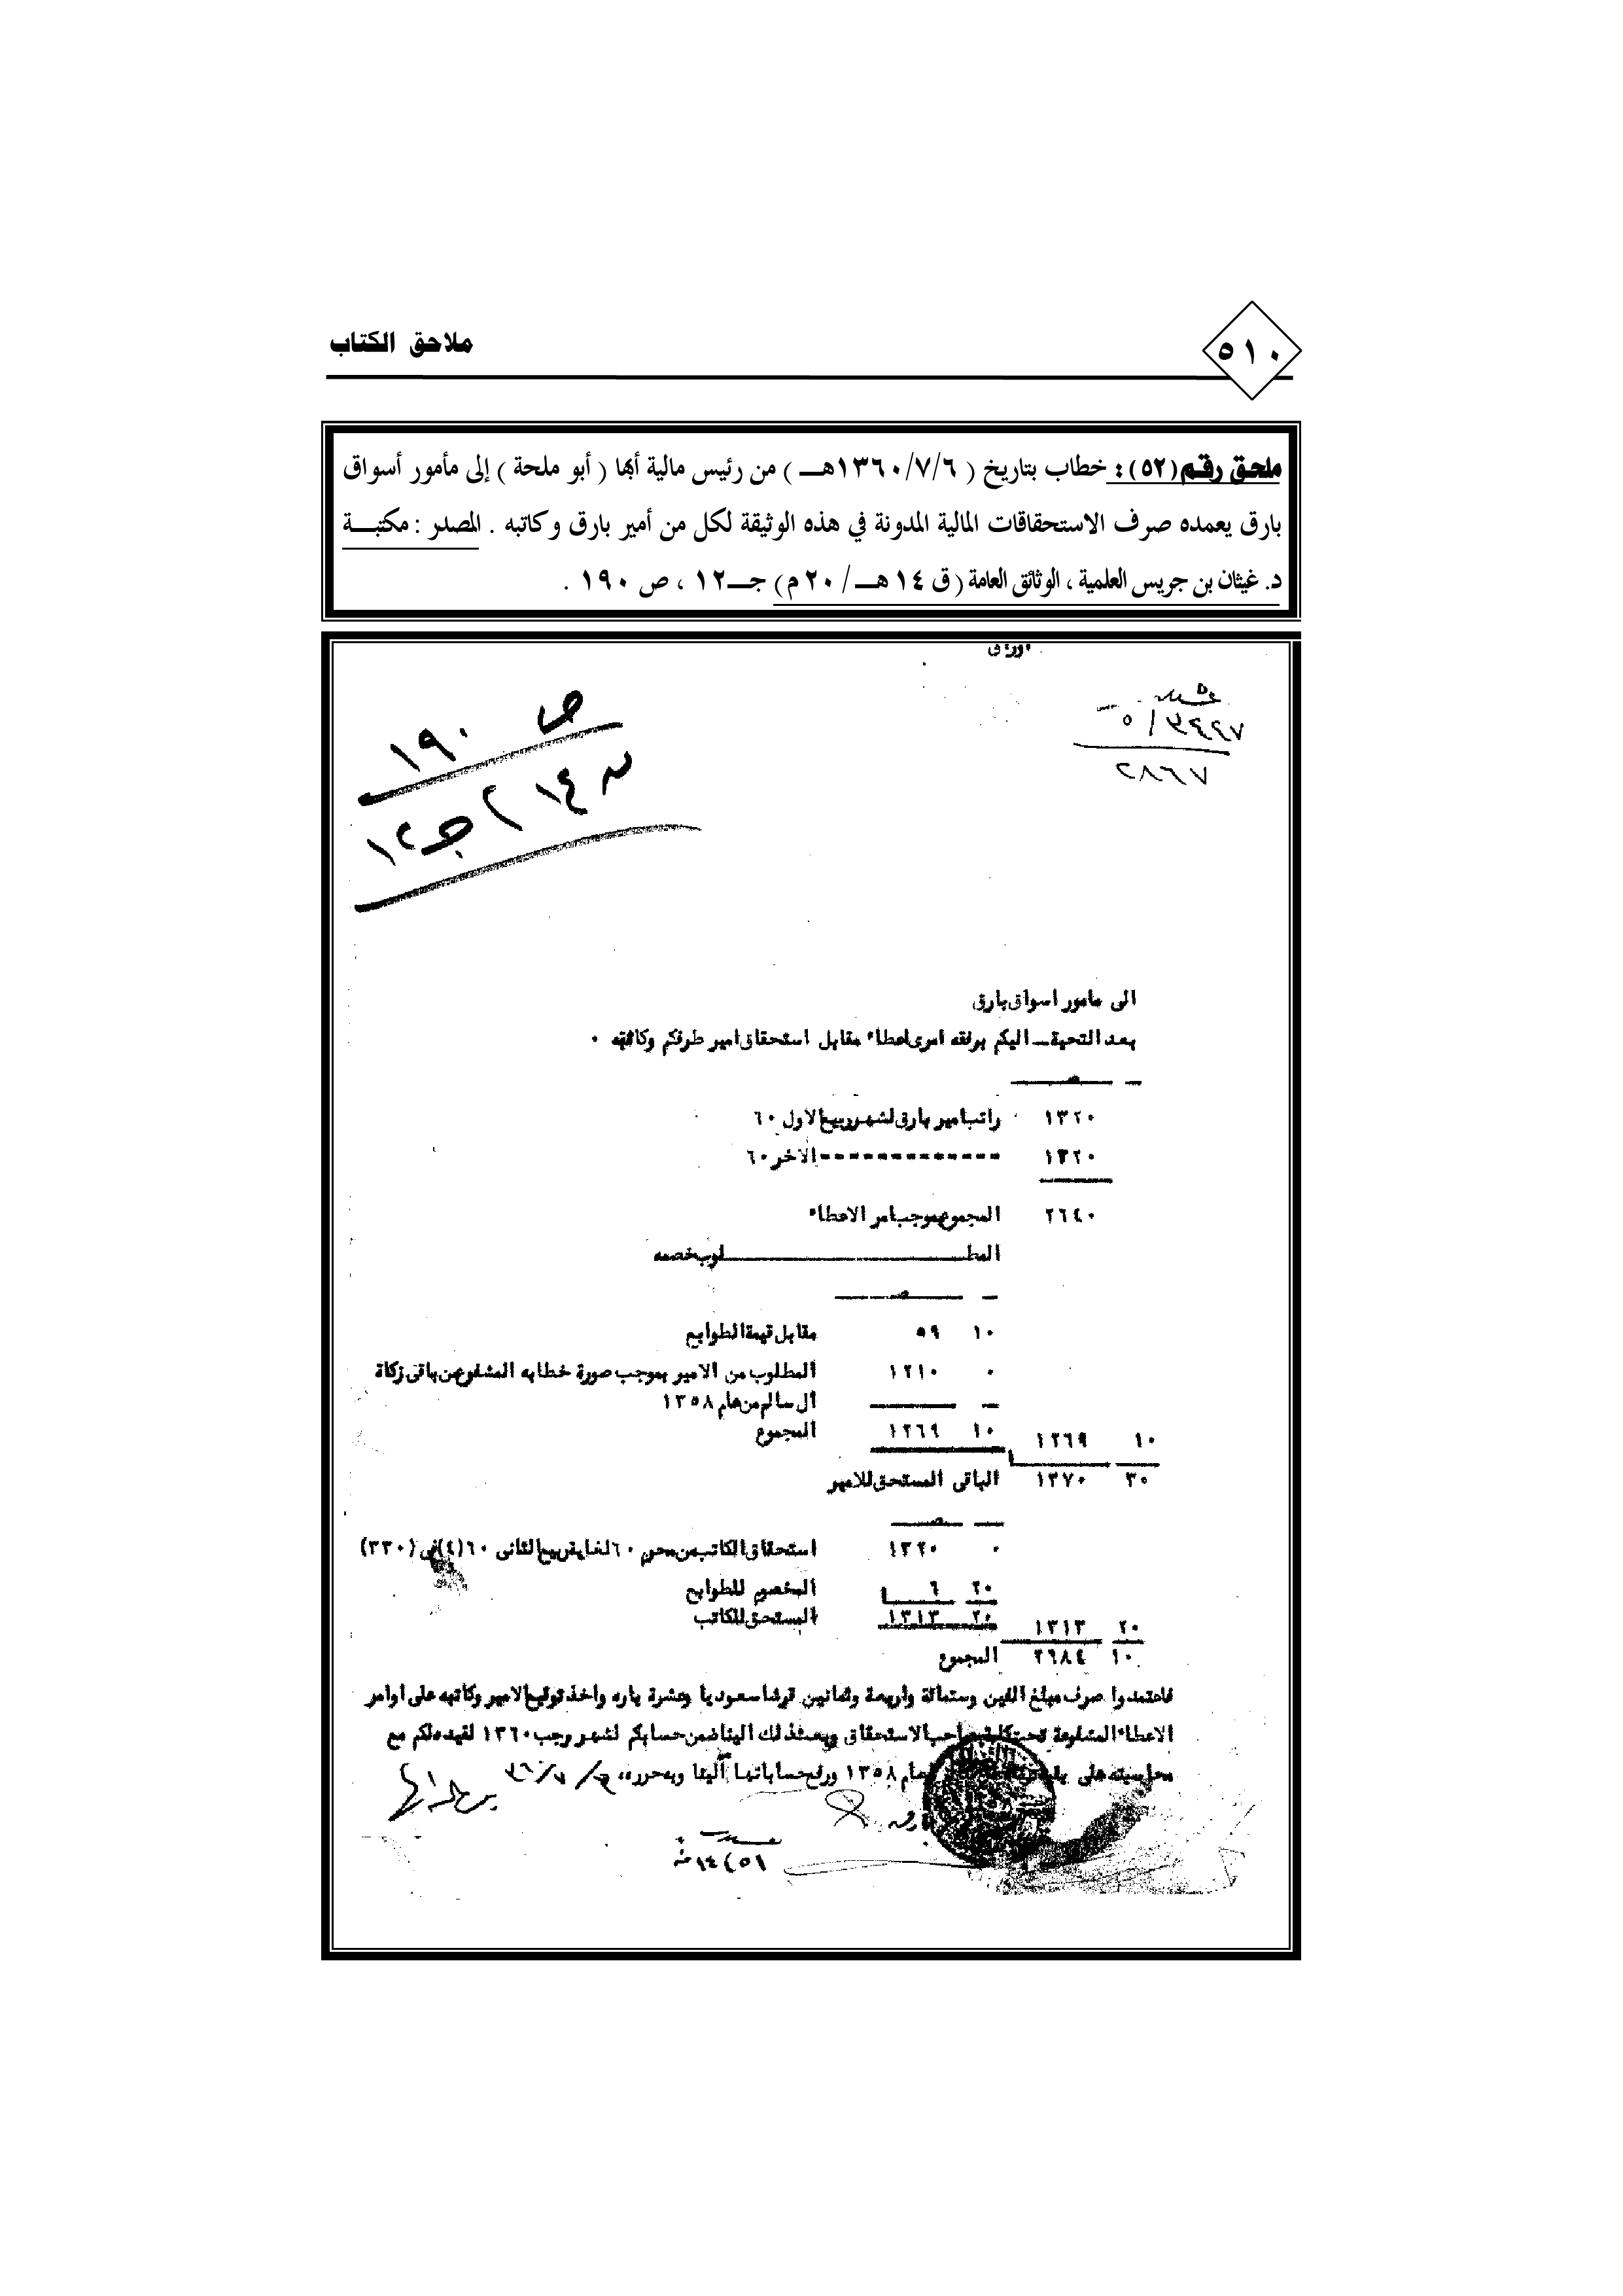 ملاحق الكتاب
٥١٠
ملحق رقم (٥٢): خطاب بتاريخ ( ١٣٦٠/٧/٦هـــ ) من رئيس مالية أبها ( أبو ملحة ) إلى مأمور أسواق
بارق يعمده صرف الاستحقاقات المالية المدونة في هذه الوثيقة لكل من أمير بارق وكاتبه . المصدر : مكتبـــة
د. غيثان بن جريس العلمية ، الوثائق العامة ( ق ١٤ هـــ / ٢٠ م ) جـــ١٢ ، ص ١٩٠ .
ص ١٩٠
جـ١٢
٢٨٦٧
الى مامور اسواق بارق
بعد التحية ــ اليكم برفقه امرى اعطاء مقابل استحقاق امير طرفكم وكاتبه ٠
١٣٢٠ راتب امير بارق لشهر ربيع الاول ٦٠
١٣٢٠ ============= الاخر ٦٠
٢٦٤٠ المجموع بموجب امر الاعطاء
المطــــــــــــــــلوب خصمه
١٠ ٥٩ مقابل قيمة الطوابع
٠ ١٢١٠ المطلوب من الامير بموجب صورة خطابه المشفوع عن باقى زكاة
ال سالم من عام ١٣٥٨
١٠ ١٢٦٩ المجموع
١٠ ١٢٦٩
٣٠ ١٣٧٠ الباقى المستحق للامير
٠ ١٣٢٠ استحقاق الكاتب من محرم ٦٠ لغاية ربيع الثانى ٦٠ (٤) فى (٣٣٠)
٢٠ ٦ المخصوم للطوابع
٢٠ ١٣١٣ المستحق للكاتب
٢٠ ١٣١٣
١٠ ٢٦٨٤ المجموع
فاعتمدوا صرف مبلغ الفين وستمائة واربعة وثمانين قرشا سعوديا وعشرة باره واخذ توقيع الامير وكاتبه على اوامر
الاعطاء المشفوعة تحت كلمة صاحب الاستحقاق وبعث ذلك الينا ضمن حسابكم لشهر رجب ١٣٦٠ لقيده لكم مع
محاسبته على عام ١٣٥٨ ورفع حساباتها الينا وبه حرر ٦/٧/٣٦٠